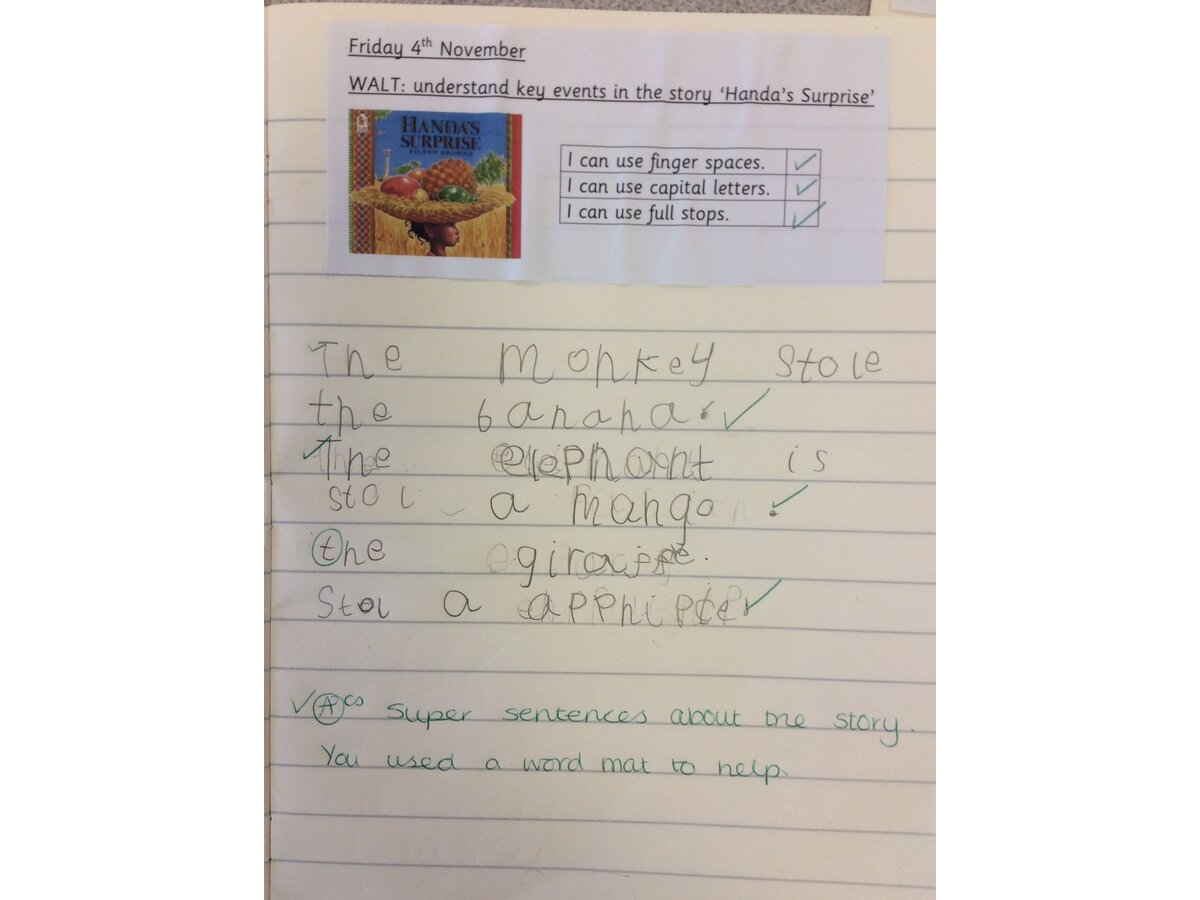 Friday 4th November
WALT: understand key events in the story 'Handa's Surprise'
HANDA'S
SURPRISE
EILEEN BROWNE
I can use finger spaces. ✓
I can use capital letters. ✓
I can use full stops. ✓
The monkey stole
the banana. ✓
The elephant is
stol a mango. ✓
the giraffe.
Stol a ✓
✓ A cs Super sentences about the story.
You used a word mat to help.